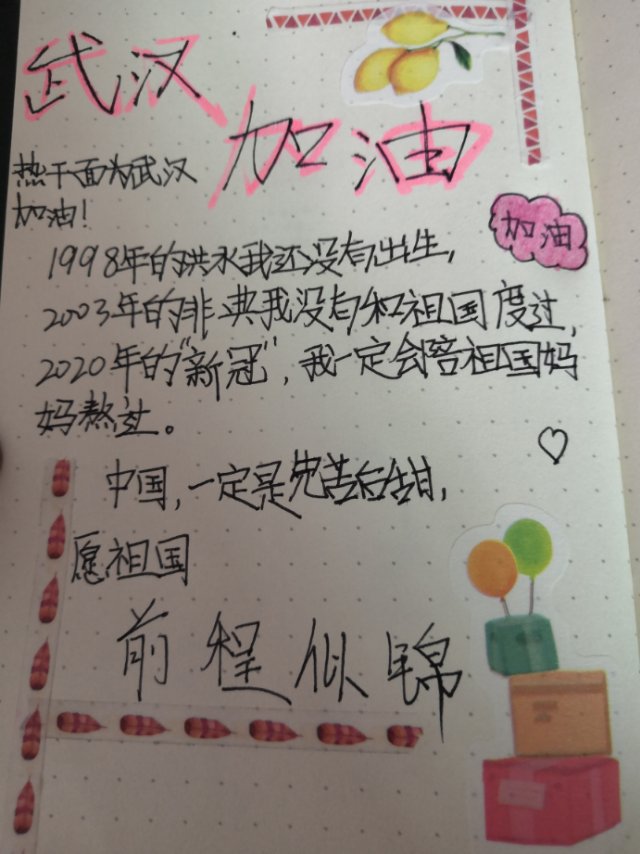 武汉
加油
热干面为武汉
加油!
加油
1998年的洪水我还没有出生,
2003年的非典我没有和祖国度过,
2020年的"新冠",我一定会陪祖国妈
妈熬过。
中国,一定是先苦后甜,
愿祖国
前程似锦